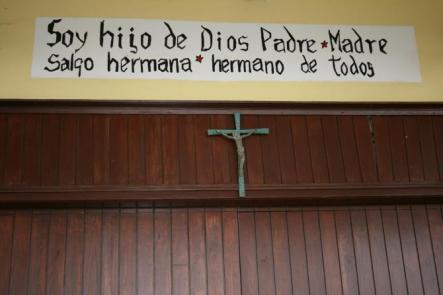 Soy hijo de Dios Padre * Madre
Salgo hermana * hermano de todos